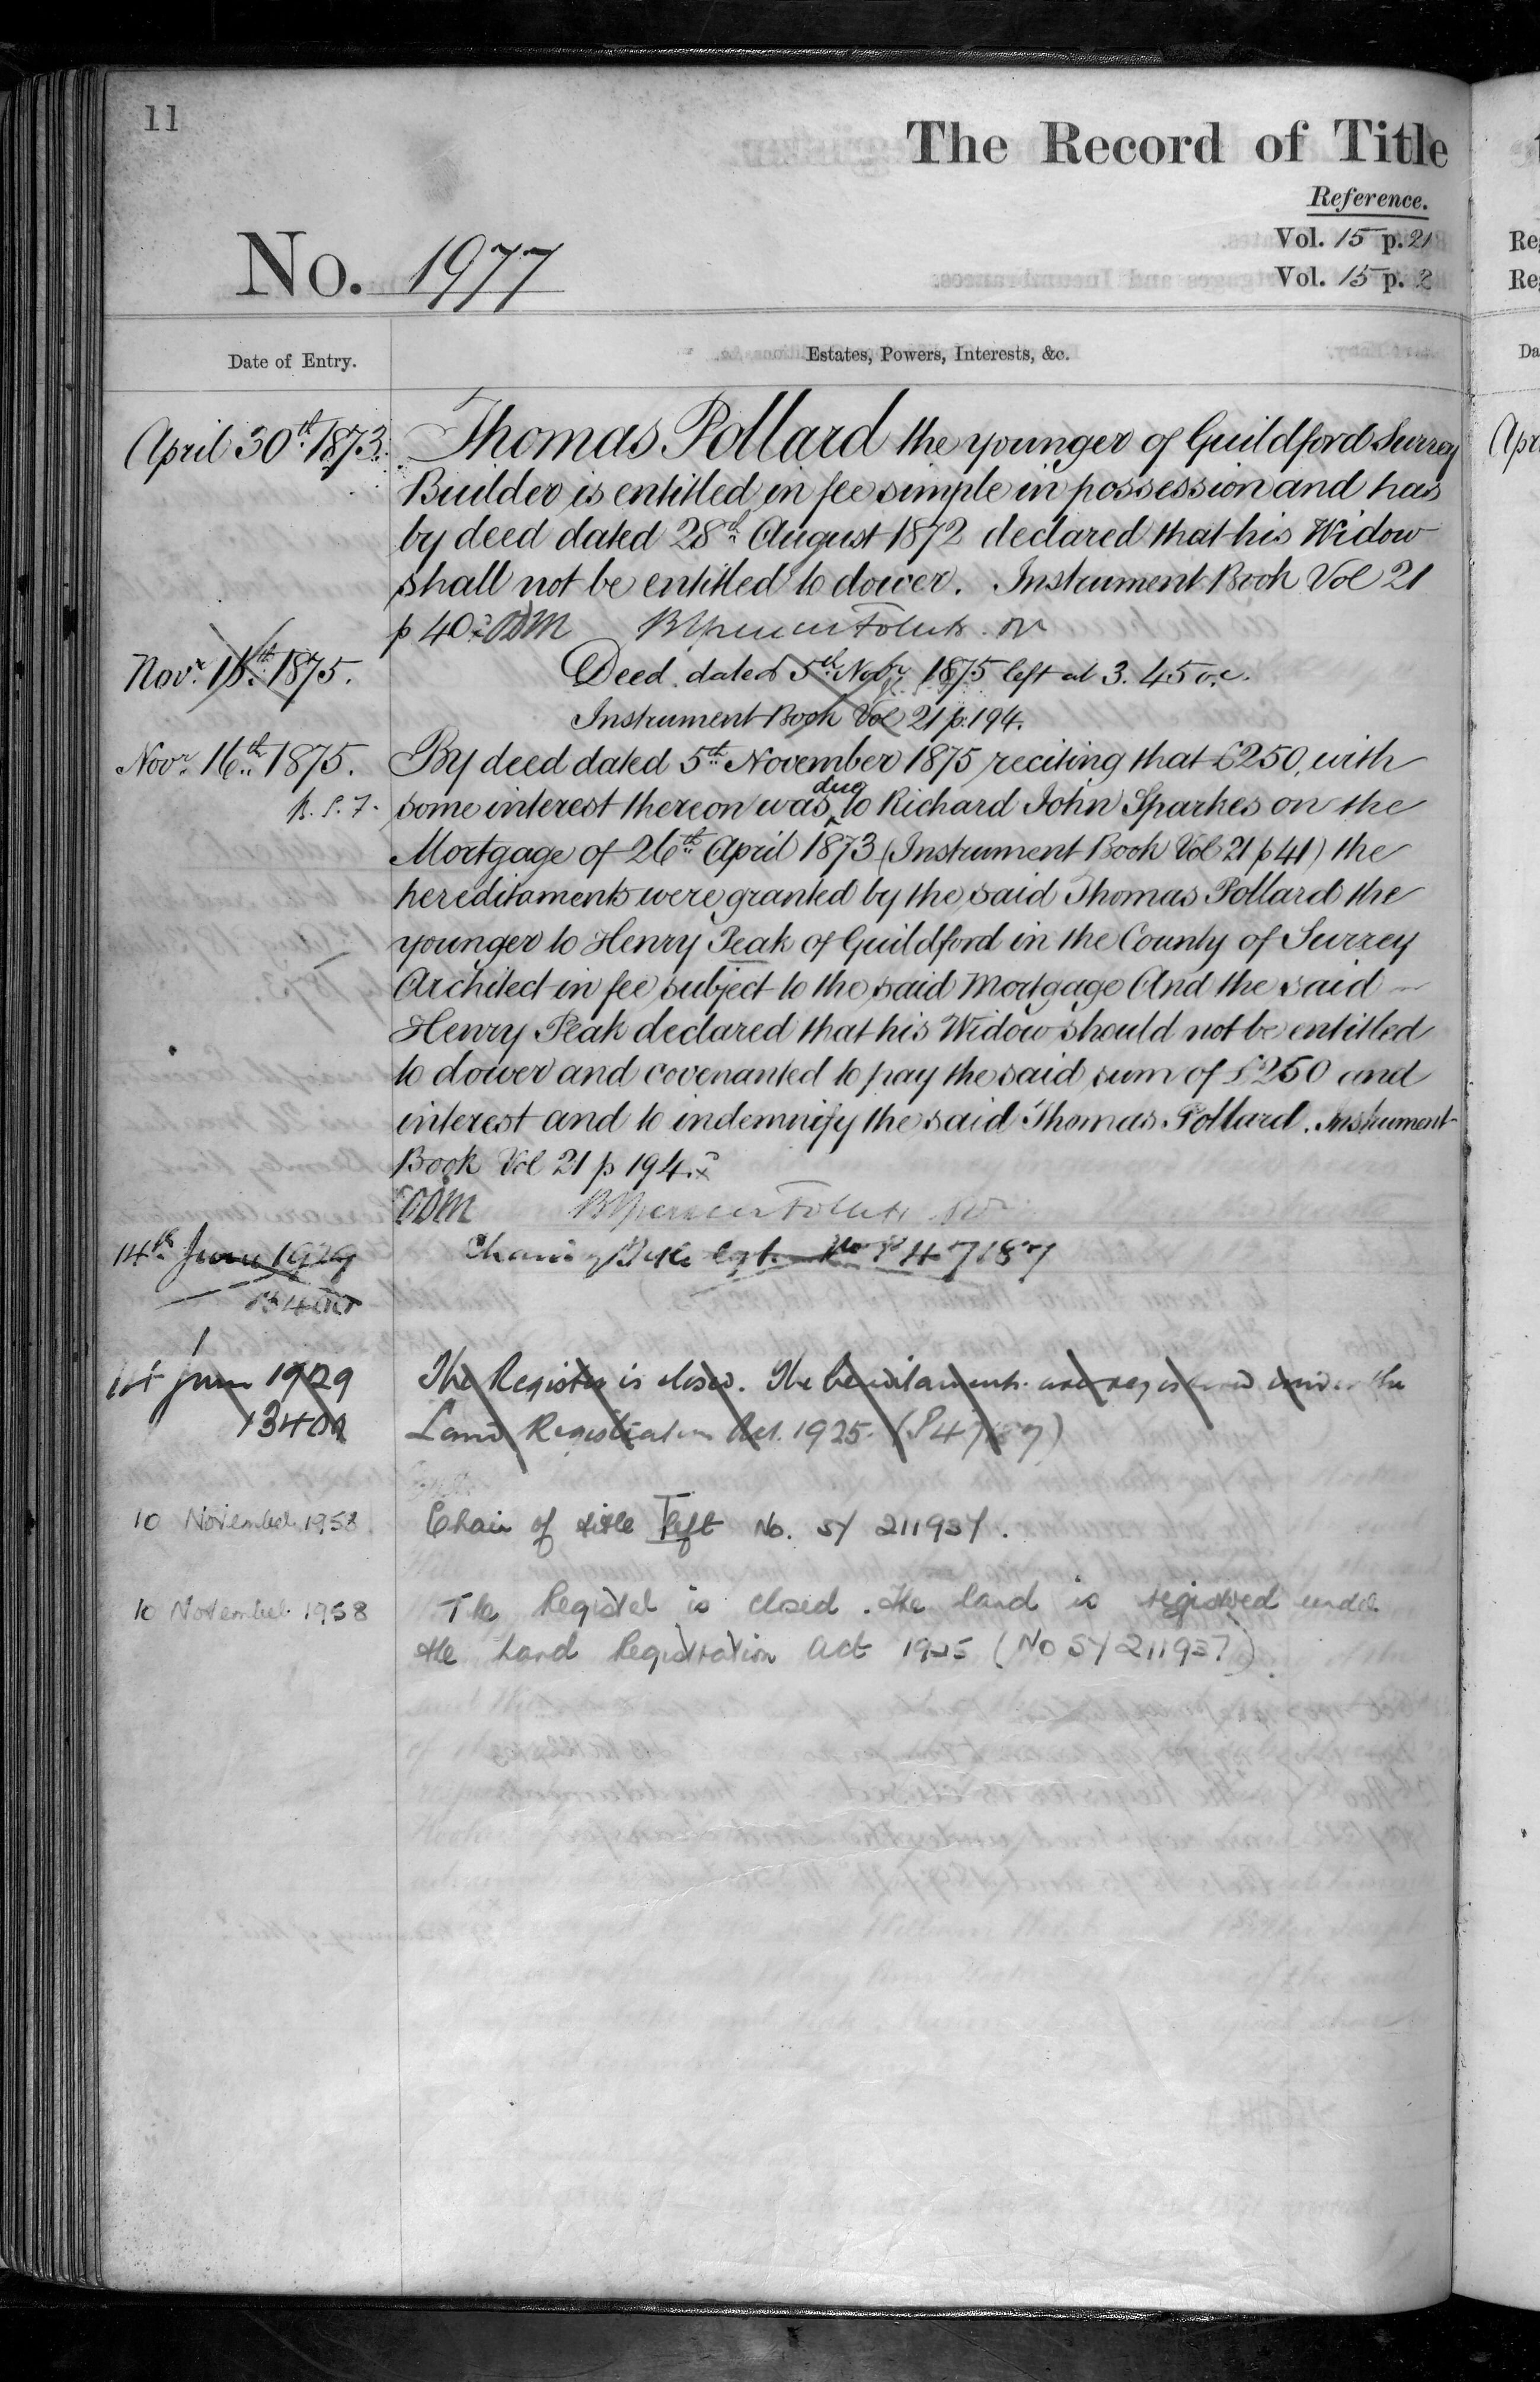 11
The Record of Title
Reference.
Vol. 15 p. 21
Vol. 15 p. 2
No. 1977
Date of Entry.
Estates, Powers, Interests, &c.
April 30th 1873.
Thomas Pollard the younger of Guildford Surrey
Builder is entitled in fee simple in possession and has
by deed dated 28th August 1872 declared that his Widow
shall not be entitled to dower. Instrument Book Vol 21
p 40. ODM
Novr. 15th 1875.
Deed dated 5th Novr. 1875 left at 3.45 o.c.
Instrument Book Vol 21 p. 194.
Novr. 16th 1875.
By deed dated 5th November 1875 reciting that £250, with
some interest thereon was due to Richard John Sparkes on the
Mortgage of 26th April 1873 (Instrument Book Vol 21 p 41) the
hereditaments were granted by the said Thomas Pollard the
younger to Henry Peak of Guildford in the County of Surrey
Architect in fee subject to the said Mortgage And the said
Henry Peak declared that his Widow should not be entitled
to dower and covenanted to pay the said sum of £250 and
interest and to indemnify the said Thomas Pollard. Instrument
Book Vol 21 p 194.
ODM
14th June 1929
No P 47187
June 1929
The Register is closed. The hereditaments are registered under the
Land Registration Act. 1925. (P47187)
10 November 1958.
Chain of title left No. SY 211937.
10 November 1958
The Register is closed. The land is registered under
the Land Registration Act 1925 (No SY 211937).
Re
Re
Da
Apr